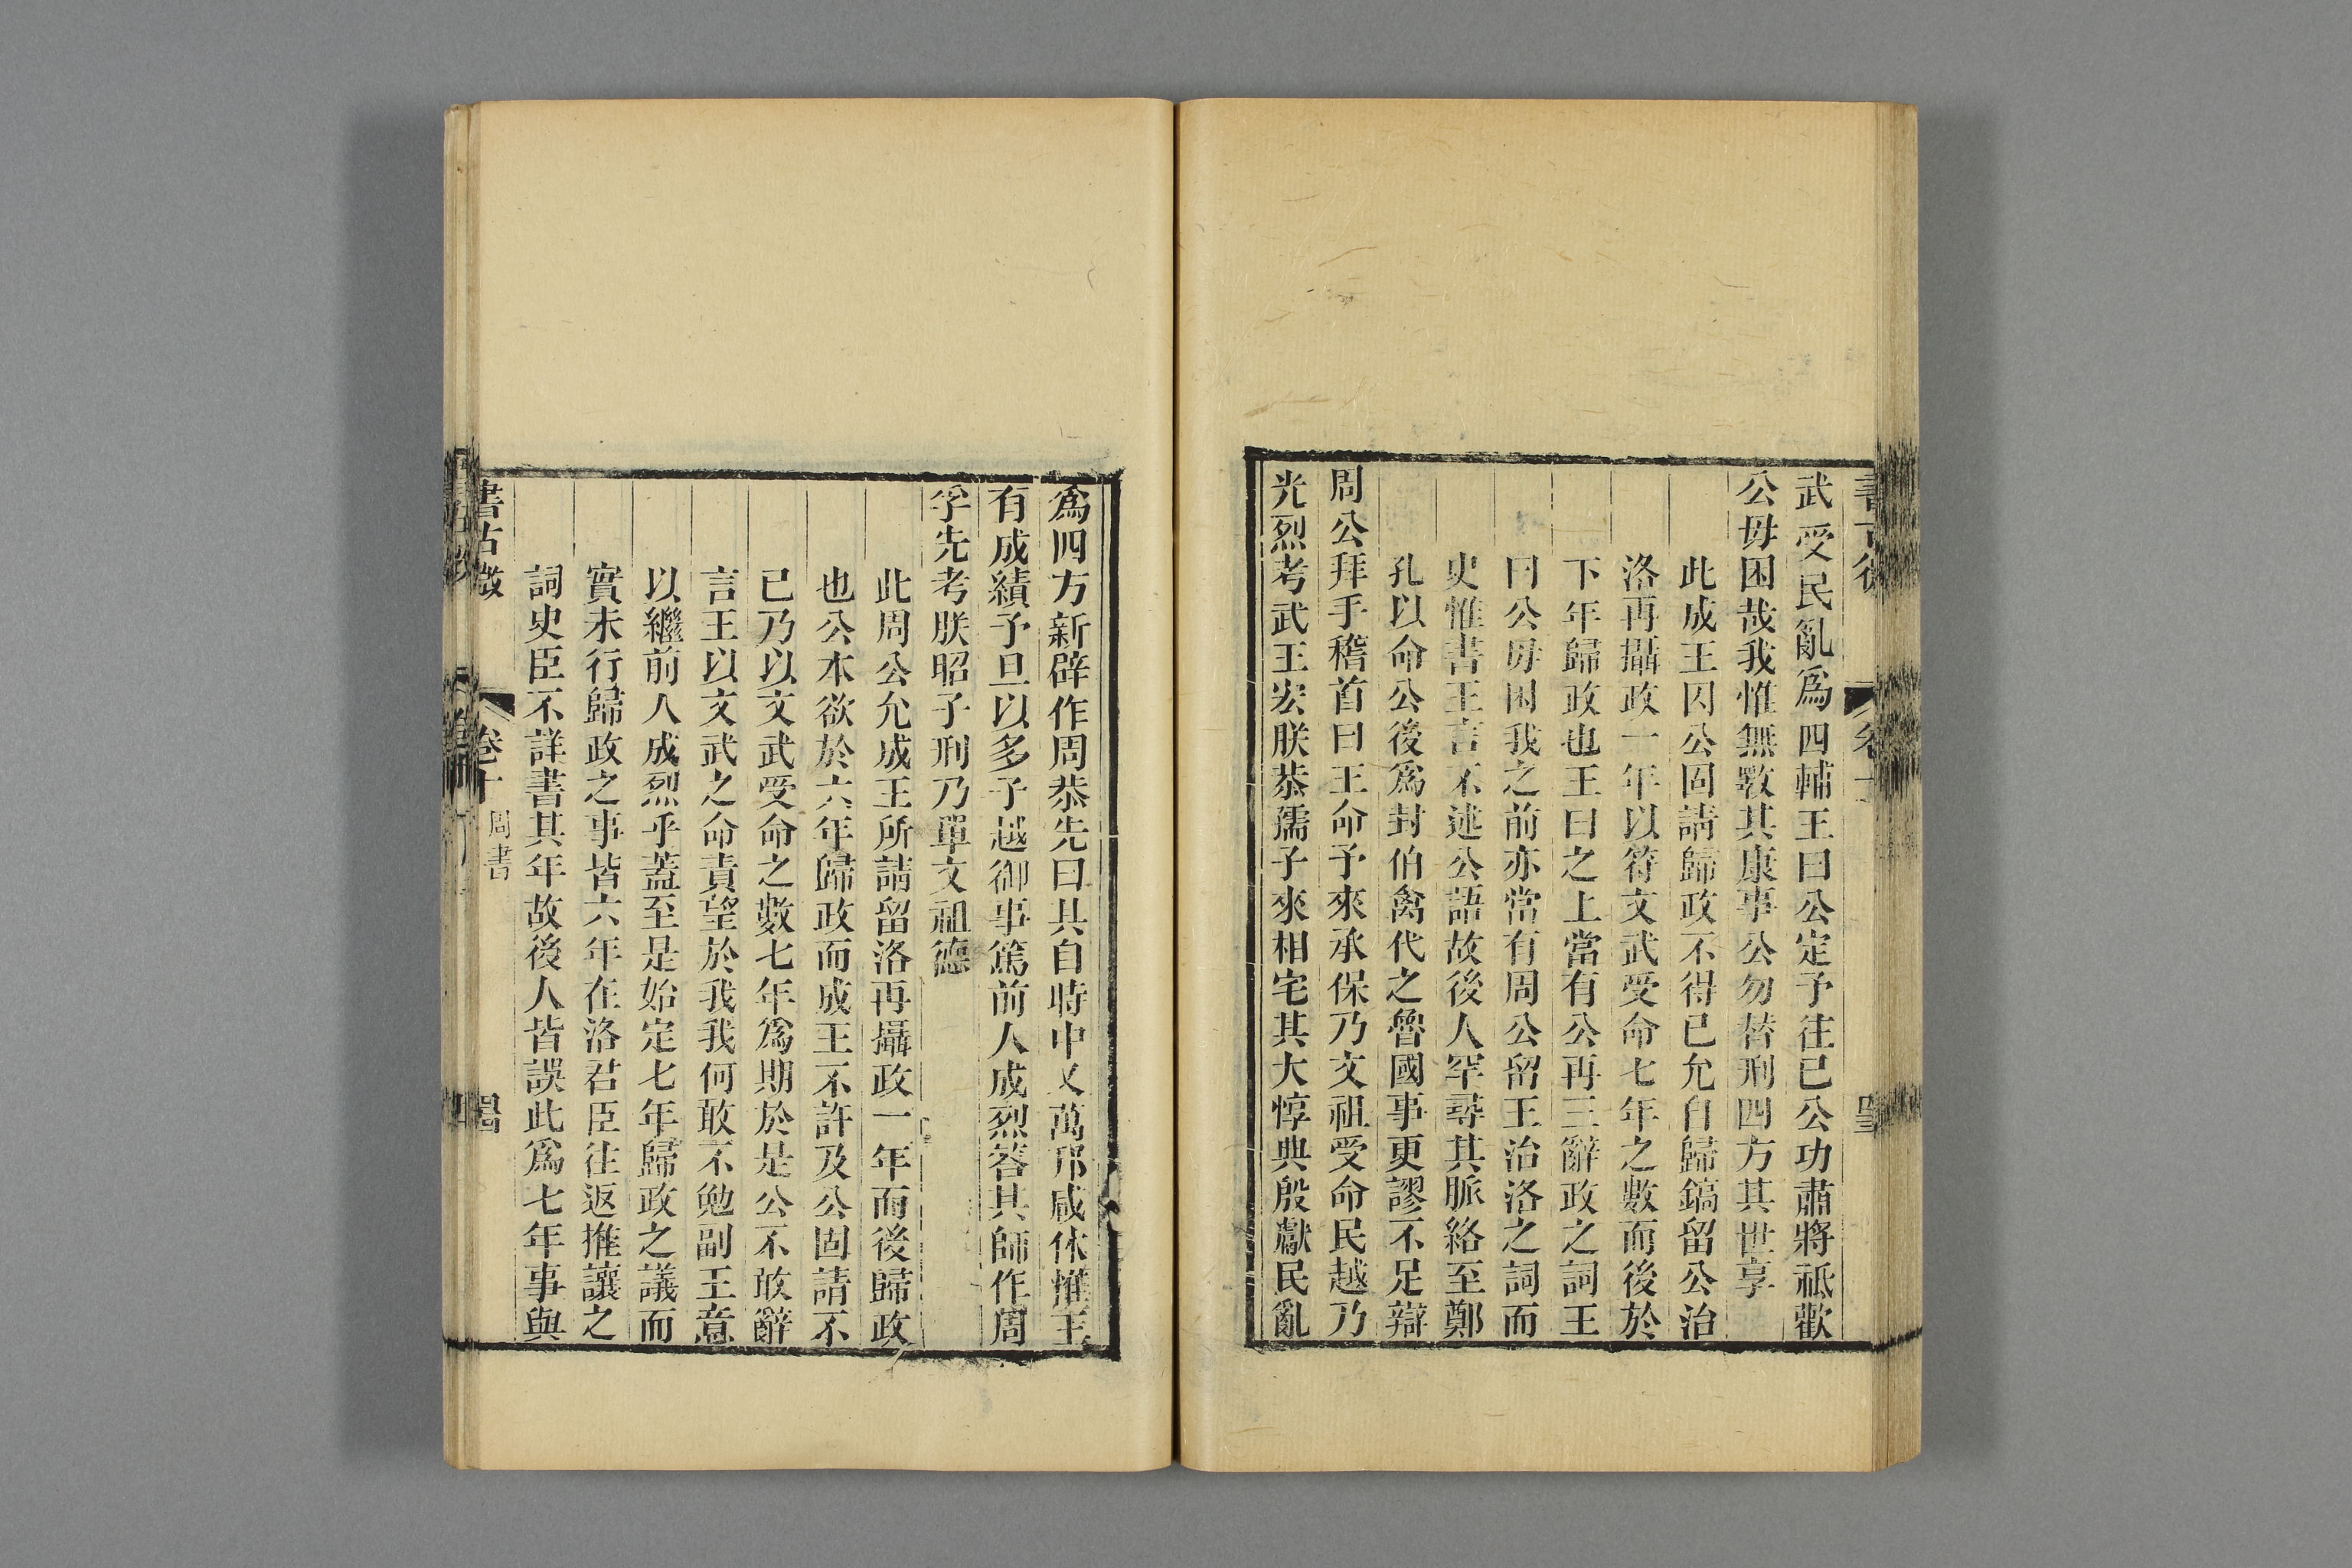 武受民亂爲四輔王曰公定予往已公功肅將祗歡
公毋困哉我惟無斁其康事公勿替刑四方其世享
此成王因公固請歸政不得已允自歸鎬留公治
洛再攝政一年以符文武受命七年之數而後於
下年歸政也王曰之上當有公再三辭政之詞王
曰公毋困我之前亦當有周公留王治洛之詞而
史惟書王言不述公語故後人罕尋其脈絡至鄭
孔以命公後爲封伯禽代之魯國事更謬不足辯
周公拜手稽首曰王命予來承保乃文祖受命民越乃
光烈考武王宏朕恭孺子來相宅其大惇典殷獻民亂
爲四方新辟作周恭先曰其自時中乂萬邦咸休惟王
有成績予旦以多子越御事篤前人成烈答其師作周
孚先考朕昭子刑乃單文祖德
此周公允成王所請留洛再攝政一年而後歸政
也公本欲於六年歸政而成王不許及公固請不
已乃以文武受命之數七年爲期於是公不敢辭
言王以文武之命責望於我我何敢不勉副王意
以繼前人成烈乎蓋至是始定七年歸政之議而
實未行歸政之事皆六年在洛君臣往返推讓之
詞史臣不詳書其年故後人皆誤此爲七年事與
書古微
卷十
周書